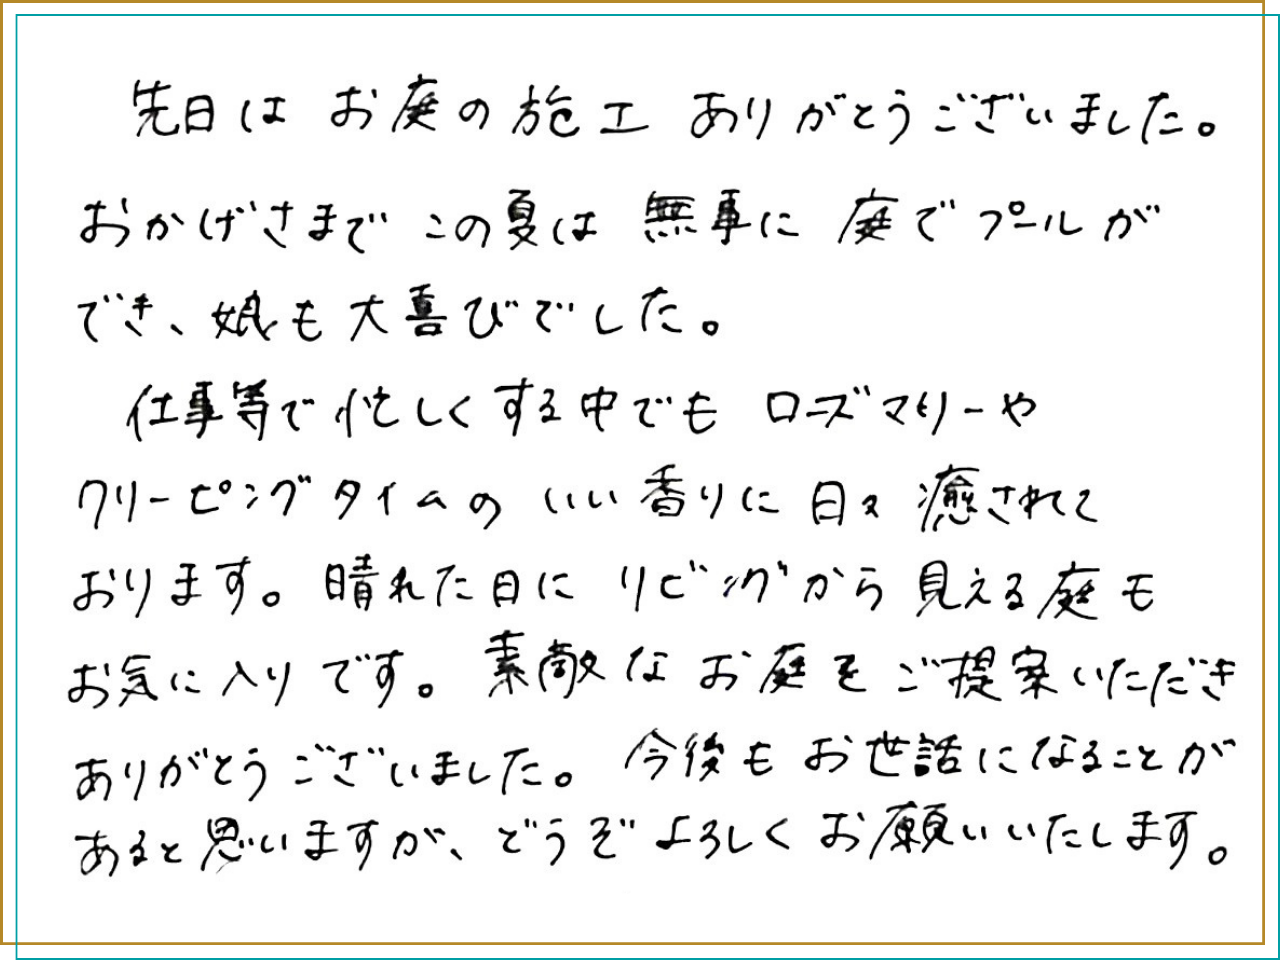 先日は お庭の施工 ありがとうございました。
おかげさまで この夏は 無事に 庭でプールが
でき、娘も大喜びでした。
仕事等で忙しくする中でも ローズマリーや
クリーピングタイムの いい香りに 日々 癒されて
おります。晴れた日に リビングから 見える庭も
お気に入りです。素敵な お庭を ご提案いただき
ありがとうございました。今後も お世話になることが
あると思いますが、どうぞ よろしくお願いいたします。